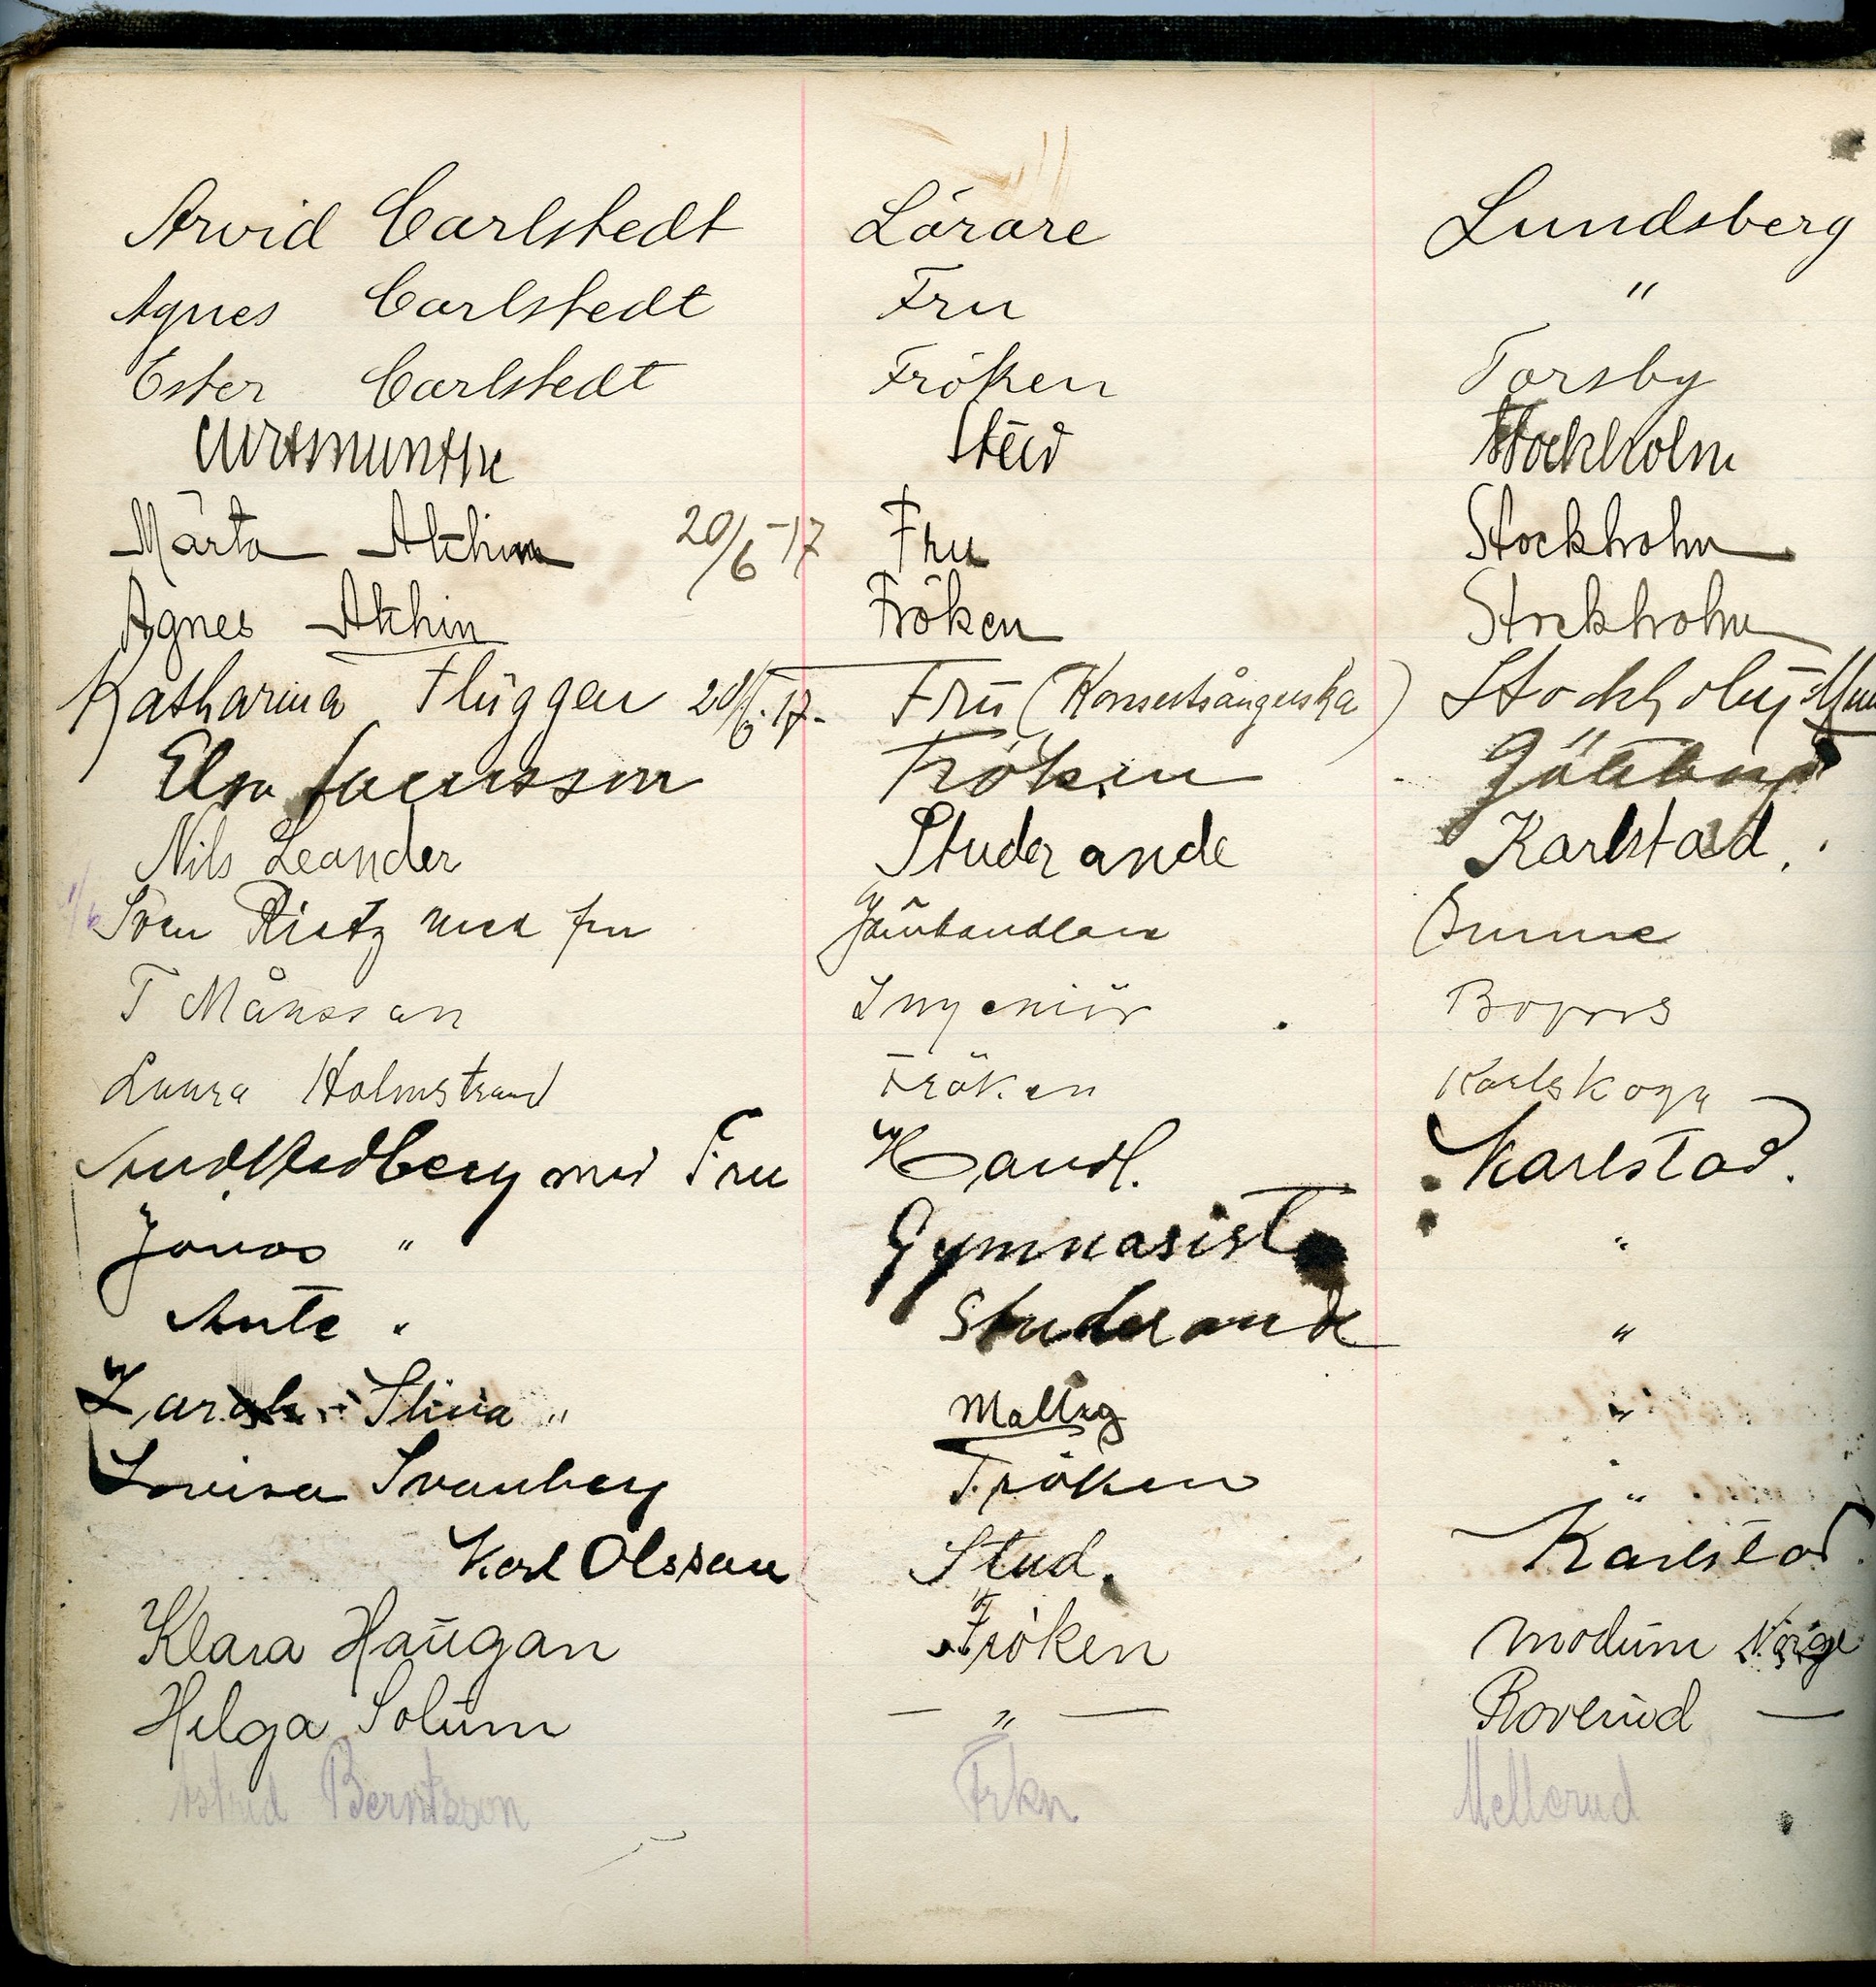 Arvid Carlstedt Lärare Lundsberg
Agnes Carlstedt Fru "
Ester Carlstedt Fröken Torsby
Stud Stockholm
Märta 20/6-17 Fru Stockholm
Agnes Fröken Stockholm
Katharina Flüggen 20/6.17. Fru (Konsertsångerska)
Elsa Fröken Göteborg
Nils Leander Studerande Karlstad.
Sven Rietz med fru Järnhandlare Sunne
T Månsson Ingeniör Bofors
Laura Holmstrand Fröken Karlskoga
med Fru Handl. Karlstad.
Jonas " Gymnasist "
Ante " Studerande "
" "
Lovisa Svanberg Fröken "
Karl Olsson Stud. Karlstad.
Klara Haugan Fröken Modum Norge
Helga Solum — " — Roverud —
Astrid Berntsson Frkn Mellerud